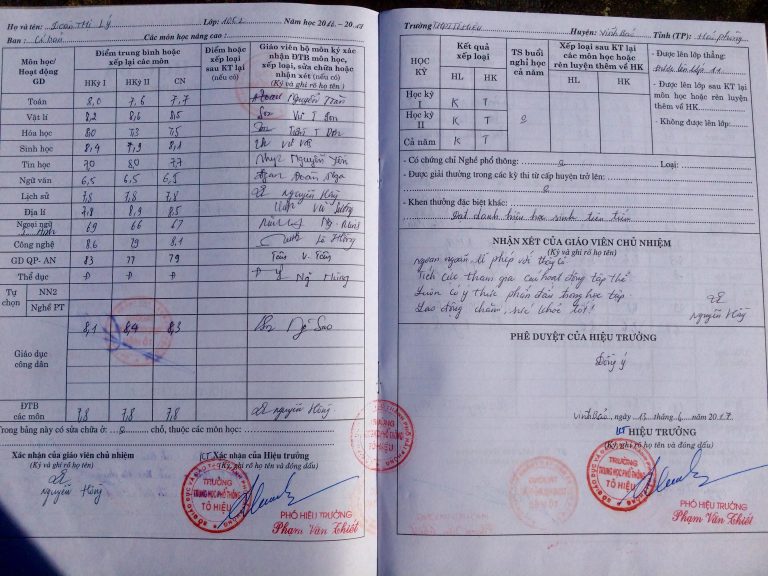 Họ và tên: Đoàn Thị Lý Lớp: 10B2 Năm học 2016 - 2017
Ban: Cơ bản Các môn học nâng cao:
Môn học/ Hoạt động GD
Điểm trung bình hoặc xếp loại các môn
HKỳ I HKỳ II CN
Điểm hoặc xếp loại sau KT lại (nếu có)
Giáo viên bộ môn ký xác nhận ĐTB môn học, xếp loại, sửa chữa hoặc nhận xét (nếu có)
(Ký và ghi rõ họ tên)
Toán 8,0 7,6 7,7 Nguyễn Toàn
Vật lí 8,2 8,6 8,5
Hóa học 8,0 7,3 7,5
Sinh học 8,4 7,9 8,1
Tin học 7,0 8,0 7,7 Nguyễn Yên
Ngữ văn 6,5 6,5 6,5 Đoàn Nga
Lịch sử 7,8 7,8 7,8 Nguyễn Hồng
Địa lí 7,8 8,9 8,5
Ngoại ngữ 69 66 67
Công nghệ 8,6 7,9 8,1
GD QP- AN 83 77 79
Thể dục Đ Đ Đ
Tự chọn NN2
Nghề PT
Giáo dục công dân 8,1 8,4 8,3
ĐTB các môn 7,8 7,8 7,8 Nguyễn Hồng
Trong bảng này có sửa chữa ở: chỗ, thuộc các môn học:
Xác nhận của giáo viên chủ nhiệm
(Ký và ghi rõ họ tên)
Nguyễn Hồng
KT Xác nhận của Hiệu trưởng
(Ký, ghi rõ họ tên và đóng dấu)
TRƯỜNG
TRUNG HỌC PHỔ THÔNG
TÔ HIỆU
PHÓ HIỆU TRƯỞNG
Phạm Văn Thiết
Trường THPT Tô Hiệu Huyện: Vĩnh Bảo Tỉnh (TP): Hải phòng
HỌC KỲ
Kết quả xếp loại
HL HK
TS buổi nghỉ học cả năm
Xếp loại sau KT lại các môn học hoặc rèn luyện thêm về HK
HL HK
Học kỳ I K T
Học kỳ II K T
Cả năm K T
- Được lên lớp thẳng:
Được lên lớp 11
- Được lên lớp sau KT lại môn học hoặc rèn luyện thêm về HK
- Không được lên lớp:
- Có chứng chỉ Nghề phổ thông: Loại:
- Được giải thưởng trong các kỳ thi từ cấp huyện trở lên:
- Khen thưởng đặc biệt khác:
Đạt danh hiệu học sinh tiên tiến
NHẬN XÉT CỦA GIÁO VIÊN CHỦ NHIỆM
(Ký và ghi rõ họ tên)
Ngoan ngoãn, lễ phép với thầy cô
Tích cực tham gia các hoạt động tập thể
Luôn có ý thức phấn đấu trong học tập.
Lao động chăm, sức khỏe tốt!
Nguyễn Hồng
PHÊ DUYỆT CỦA HIỆU TRƯỞNG
Đồng ý
Vĩnh Bảo, ngày 13 tháng 6 năm 2017
KT HIỆU TRƯỞNG
(Ký, ghi rõ họ tên và đóng dấu)
TRƯỜNG
TRUNG HỌC PHỔ THÔNG
TÔ HIỆU
PHÓ HIỆU TRƯỞNG
Phạm Văn Thiết